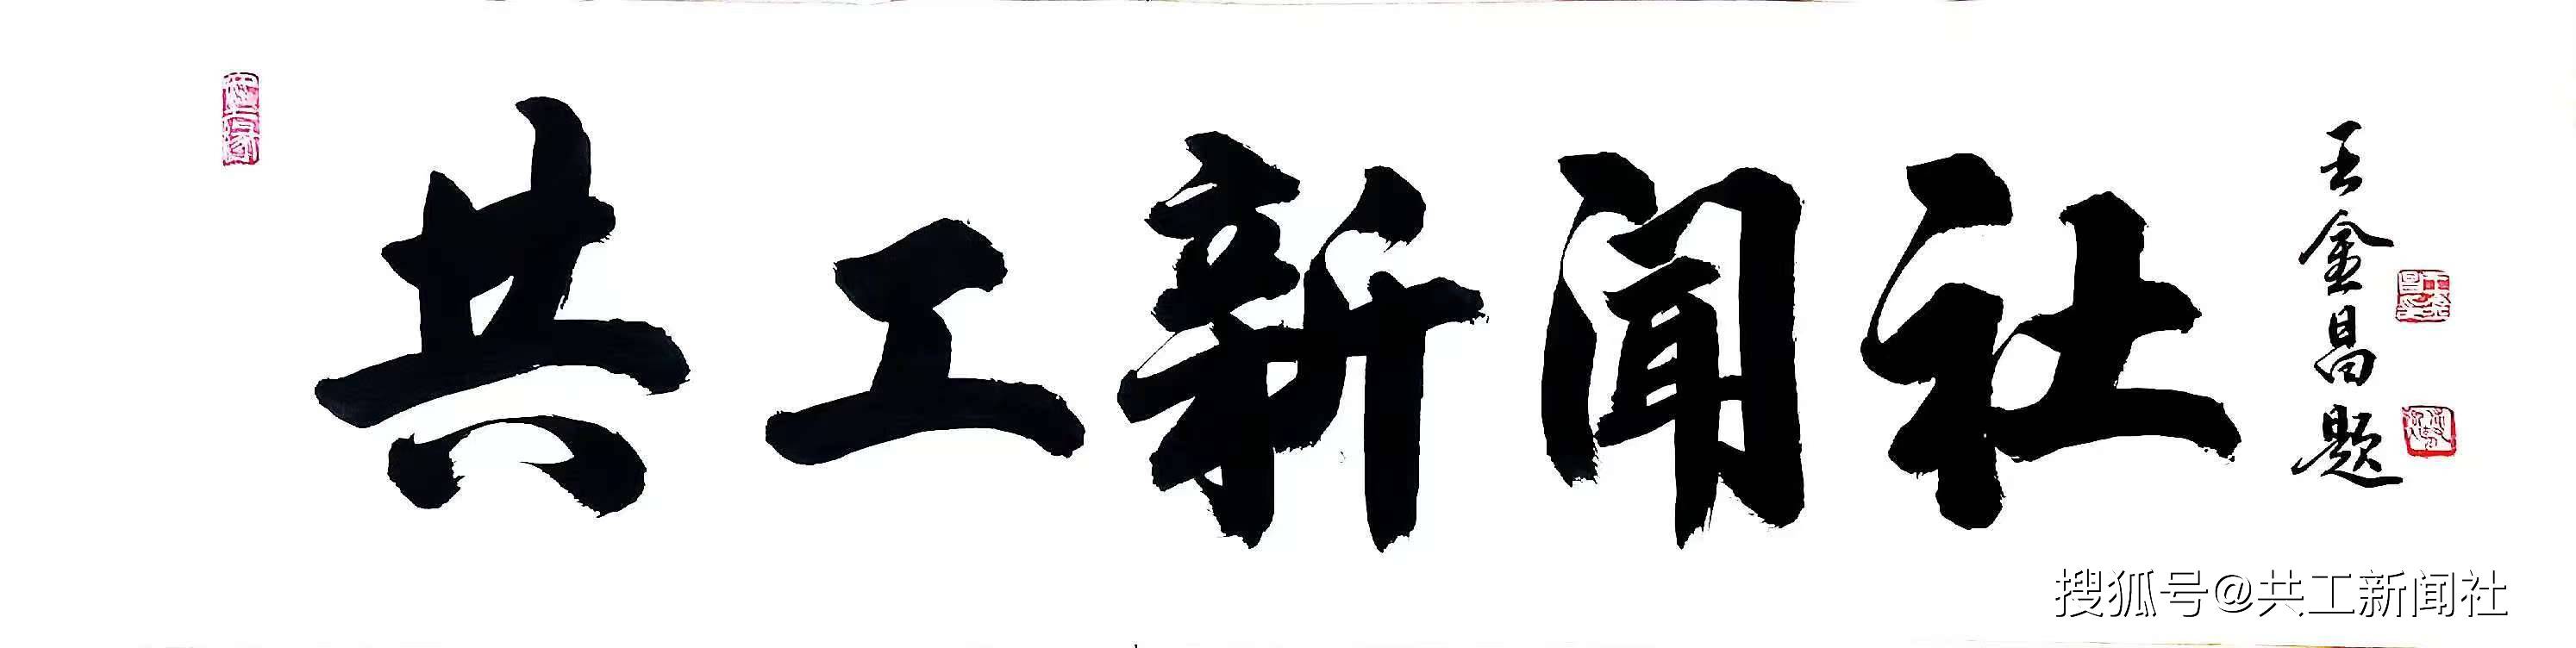 共工新闻社
王金昌题
搜狐号@共工新闻社